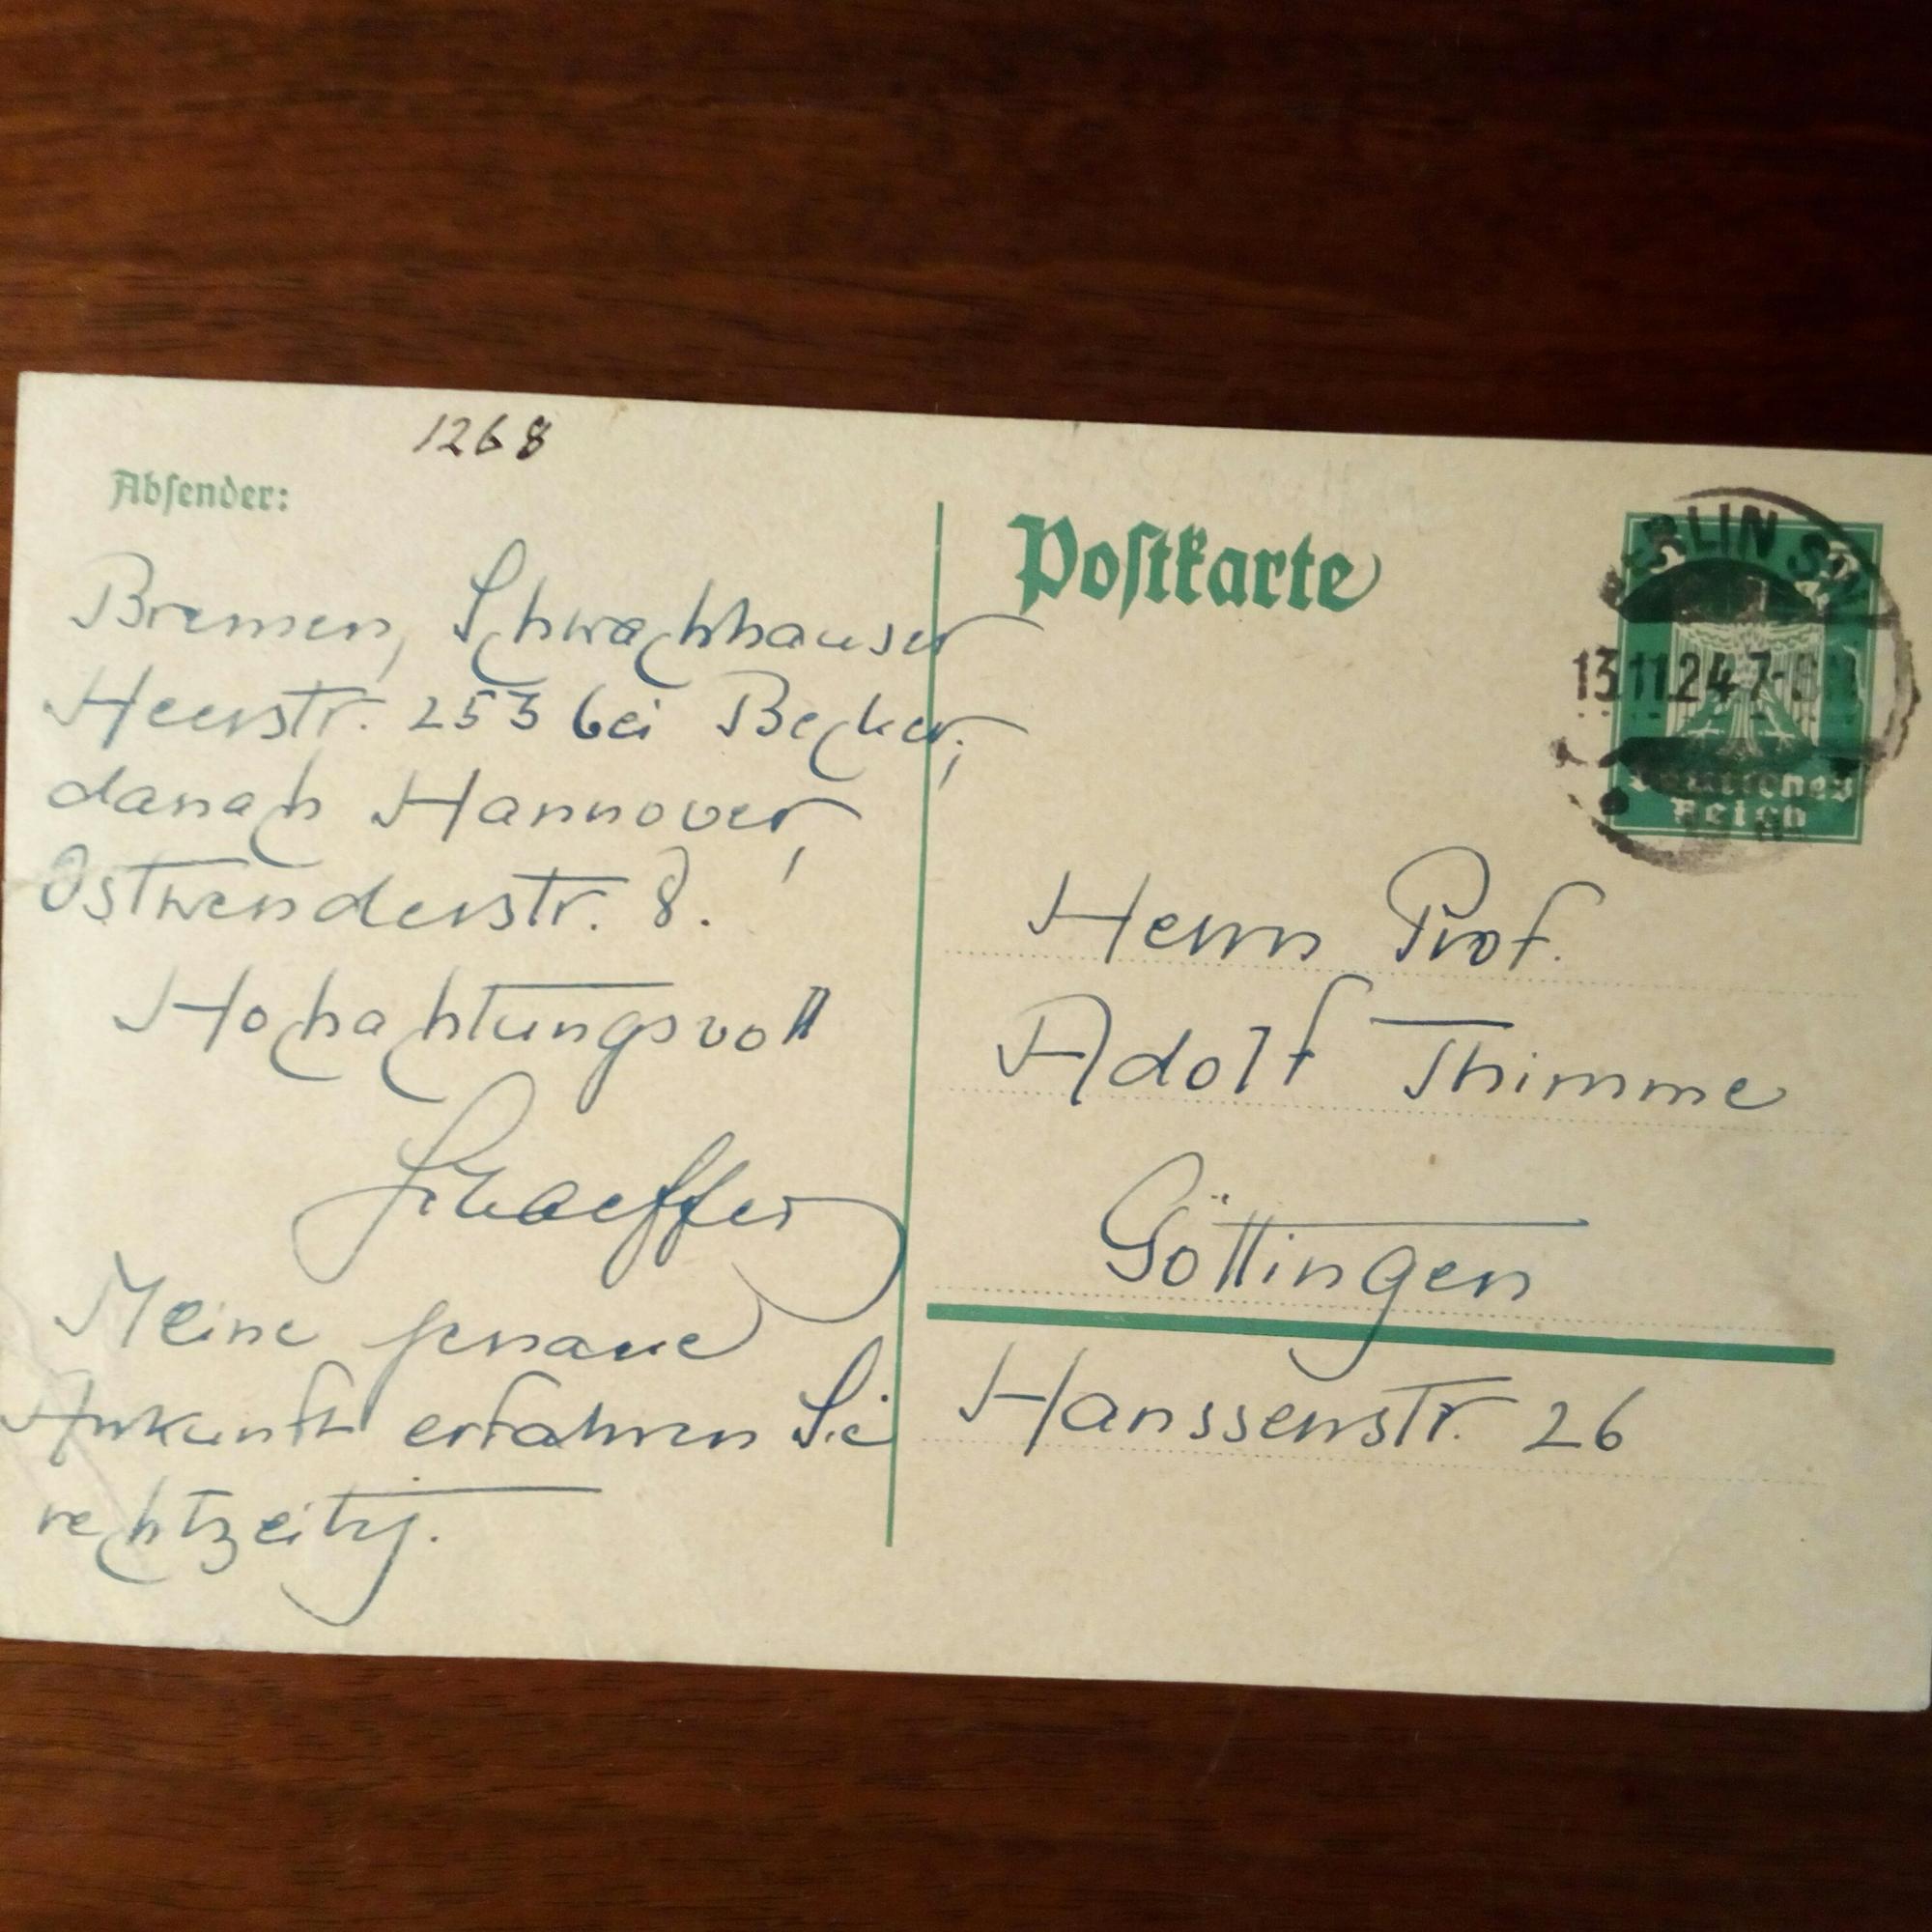 1268
Absender:
Bremen, Schwachhauser
Heerstr. 253 bei Becker,
danach Hannover,
Ostwenderstr. 8.
Hochachtungsvoll
Schaeffer
Meine genaue
Ankunft erfahren Sie
rechtzeitig.
Postkarte
BERLIN SW
13.11.24.7-8
Deutsches
Reich
Herrn Prof.
Adolf Thimme
Göttingen
Hanssenstr. 26